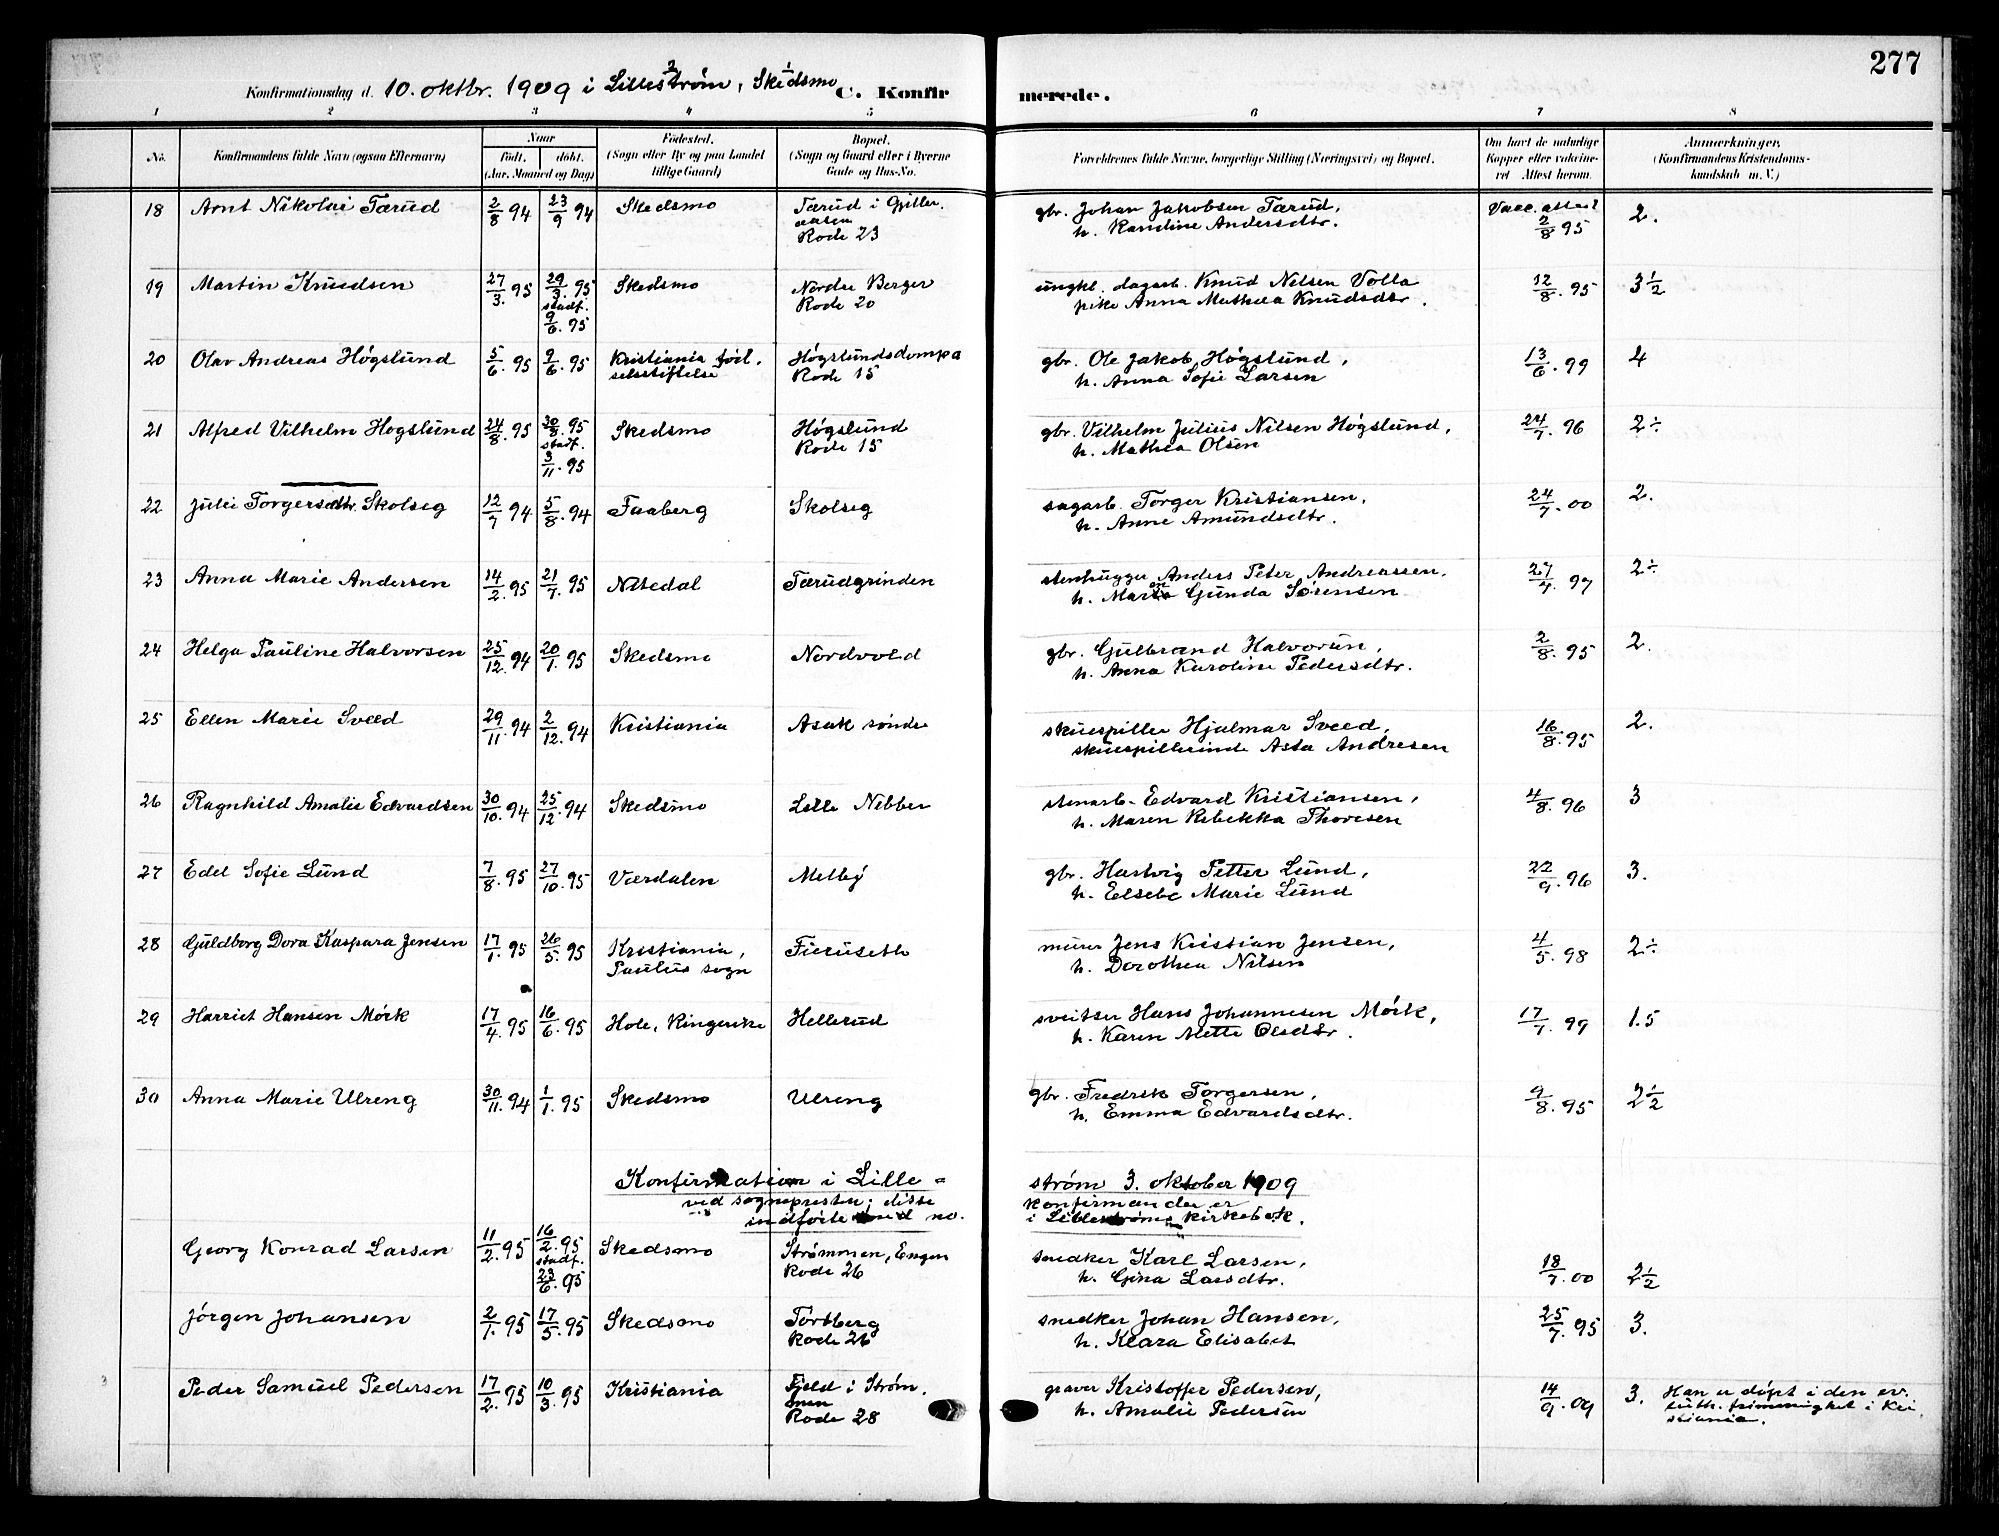 277
Konfirmationsdag d. 10. oktbr. 1909 i Lillestrøm, Skedsmo
C. Konfirmerede.
1 2 3 4 5 6 7 8
No. Konfirmandens fulde Navn (ogsaa Efternavn) Naar født. døbt. (Aar, Maaned og Dag) Fødested. (Sogn eller By og paa Landet tillige Gaard) Bopæl. (Sogn og Gaard eller i Byerne Gade og Hus-No. Forældrenes fulde Navne, borgerlige Stilling (Næringsvei) og Bopæl. Om havt de naturlige Kopper eller vaccineret. Attest herom. Anmærkninger. (Konfirmandens Kristendomskundskab m. V.)
18 Arnt Nikolai Tærud 2/8 94 23/9 94 Skedsmo Tærud i Gjelleraasen Rode 23 gbr. Johan Jakobsen Tærud, h. Randine Andersdtr. Vacc. attest 2/8 95 2.
19 Martin Knudsen 27/3. 95 29/3. 95 stadf. 9/6. 95 Skedsmo Nordre Berger Rode 20 ungkl. dagarb. Knud Nilsen Volla pike Anna Mathea Knudsdtr. 12/8. 95 3 1/2
20 Olav Andreas Høgslund 5/6. 95 9/6. 95 Kristiania fødselsstiftelse Høgslundsdompa Rode 15 gbr. Ole Jakob Høgslund, h. Anna Sofie Larsen 13/6. 99 4
21 Alfred Vilhelm Høgslund 24/8. 95 30/8. 95 stadf. 3/11. 95 Skedsmo Høgslund Rode 15 gbr. Vilhelm Julius Nilsen Høgslund, h. Mathea Olsen 24/7. 96 2÷
22 Julie Torgersdtr. Skolseg 12/7 94 5/8. 94 Faaberg Skolseg sagarb. Torger Kristiansen, h. Anne Amundsdtr. 24/7. 00 2.
23 Anna Marie Andersen 14/2. 95 21/7. 95 Nitedal Tærudgrinden stenhugger Anders Peter Andreassen, h. Maren Gunda Sørensen 27/7. 97 2÷
24 Helga Pauline Halvorsen 25/12. 94 20/1. 95 Skedsmo Nordvold gbr. Gulbrand Halvorsen, h. Anna Karoline Pedersdtr. 2/8. 95 2.
25 Ellen Marie Sveed 29/11. 94 2/12. 94 Kristiania Asak søndre skuespiller Hjalmar Sveed, skuespillerinde Asta Andresen 16/8. 95 2.
26 Ragnhild Amalie Edvardsen 30/10. 94 25/12 94 Skedsmo Lille Nebber stenarb. Edvard Kristiansen, h. Maren Rebekka Thoresen 4/8. 96 3
27 Edel Sofie Lund 7/8. 95 27/10. 95 Værdalen Melby gbr. Hartvig Petter Lund, h. Elsebe Marie Lund 22/9. 96 3.
28 Guldborg Dora Kaspara Jensen 17/1. 95 26/5. 95 Kristiania, Paulus sogn Fieruseth murer Jens Kristian Jensen, h. Dorothea Nilsen 4/5. 98 2÷
29 Harriet Hansen Mørk 17/4. 95 16/6. 95 Hole, Ringerike Hellerud sveitser Hans Johannesen Mørk, h. Karen Mette Olsdtr. 17/7. 99 1.5
30 Anna Marie Ulreng 30/11. 94 1/1. 95 Skedsmo Ulreng gbr. Fredrik Torgersen, h. Emma Edvardsdtr. 9/8. 95 2 1/2
Konfirmation i Lillestrøm 3. oktober 1909
ved sognepresten; disse konfirmander er
indførte i Lillestrøms kirkebok.
Georg Konrad Larsen 11/2. 95 16/2. 95 stadf. 23/6. 95 Skedsmo Strømmen, Engen Rode 26 snedker Karl Larsen, h. Gina Larsdtr. 18/7. 00 2 1/2
Jørgen Johansen 2/1. 95 17/5. 95 Skedsmo Torsberg Rode 26 snedker Johan Hansen, h. Klara Elisabet 25/7. 95 3.
Peder Samuel Pedersen 17/2. 95 10/3. 95 Kristiania Fjeld i Strømmen Rode 28 graver Kristoffer Pedersen, h. Amalie Pedersen 14/9. 09 3. Han er døpt i den ev. luth. frimenighet i Kristiania.